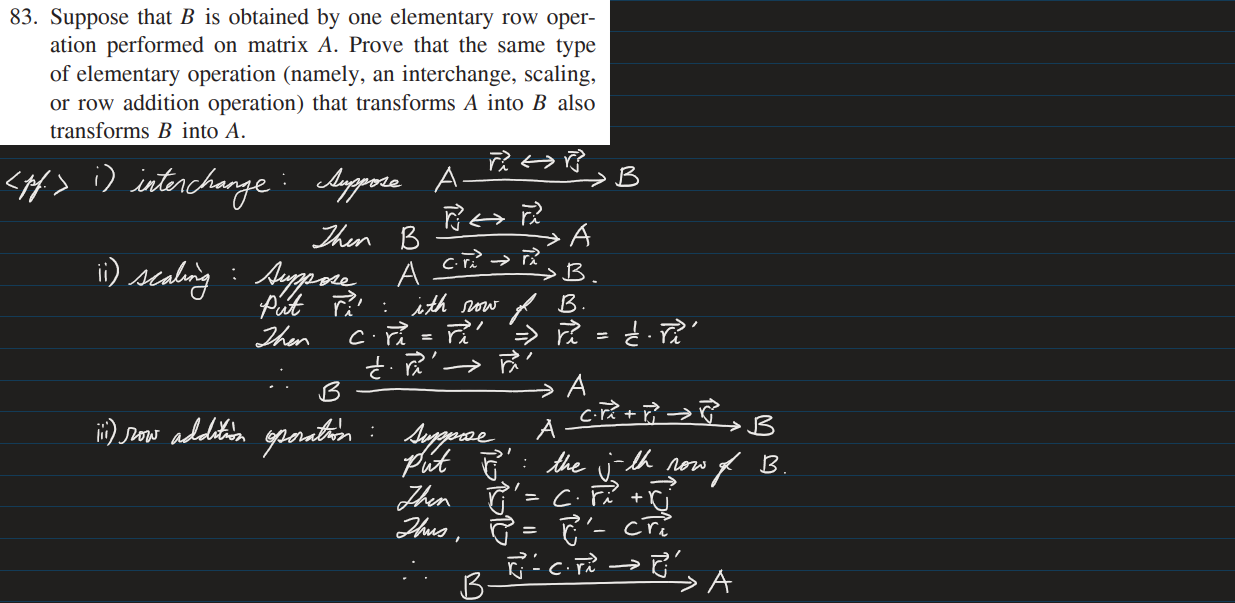 83. Suppose that B is obtained by one elementary row oper-
ation performed on matrix A. Prove that the same type
of elementary operation (namely, an interchange, scaling,
or row addition operation) that transforms A into B also
transforms B into A.
<pf.> i) interchange : Suppose A r⃗ᵢ ↔ r⃗ⱼ → B
Then B r⃗ⱼ ↔ r⃗ᵢ → A
ii) scaling : Suppose A c·r⃗ᵢ → r⃗ᵢ → B.
Put r⃗ᵢ' : ith row of B.
Then c · r⃗ᵢ = r⃗ᵢ' ⇒ r⃗ᵢ = 1/c · r⃗ᵢ'
∴ B 1/c · r⃗ᵢ' → r⃗ᵢ' → A
iii) row addition operation : Suppose A c·r⃗ᵢ + r⃗ⱼ → r⃗ⱼ → B
Put r⃗ⱼ' : the j-th row of B.
Then r⃗ⱼ' = c · r⃗ᵢ + r⃗ⱼ
Thus, r⃗ⱼ = r⃗ⱼ' - c r⃗ᵢ
∴ B r⃗ⱼ' - c · r⃗ᵢ → r⃗ⱼ' → A